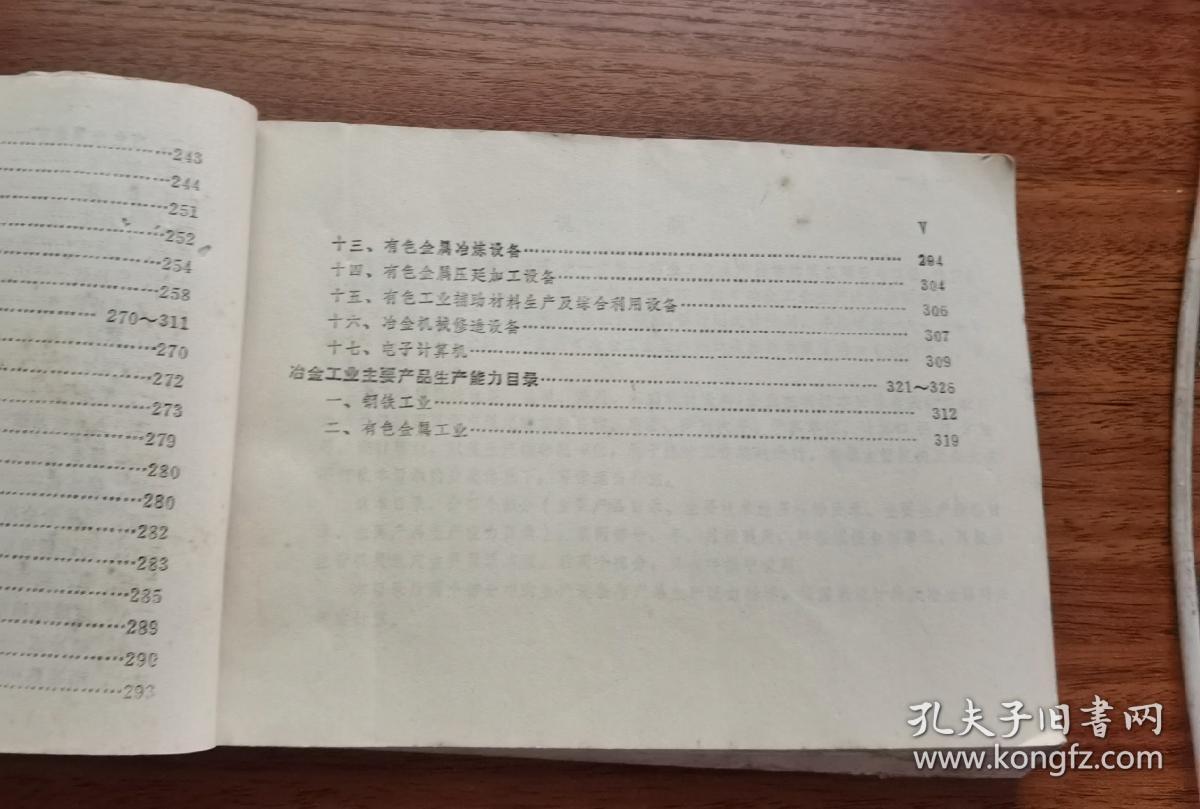 243
244
251
252
254
258
270~311
270
272
273
279
280
280
282
283
285
289
290
293
V
十三、有色金属冶炼设备 294
十四、有色金属压延加工设备 304
十五、有色工业辅助材料生产及综合利用设备 306
十六、冶金机械修造设备 307
十七、电子计算机 309
冶金工业主要产品生产能力目录 321~326
一、钢铁工业 312
二、有色金属工业 319
孔夫子旧书网
www.kongfz.com